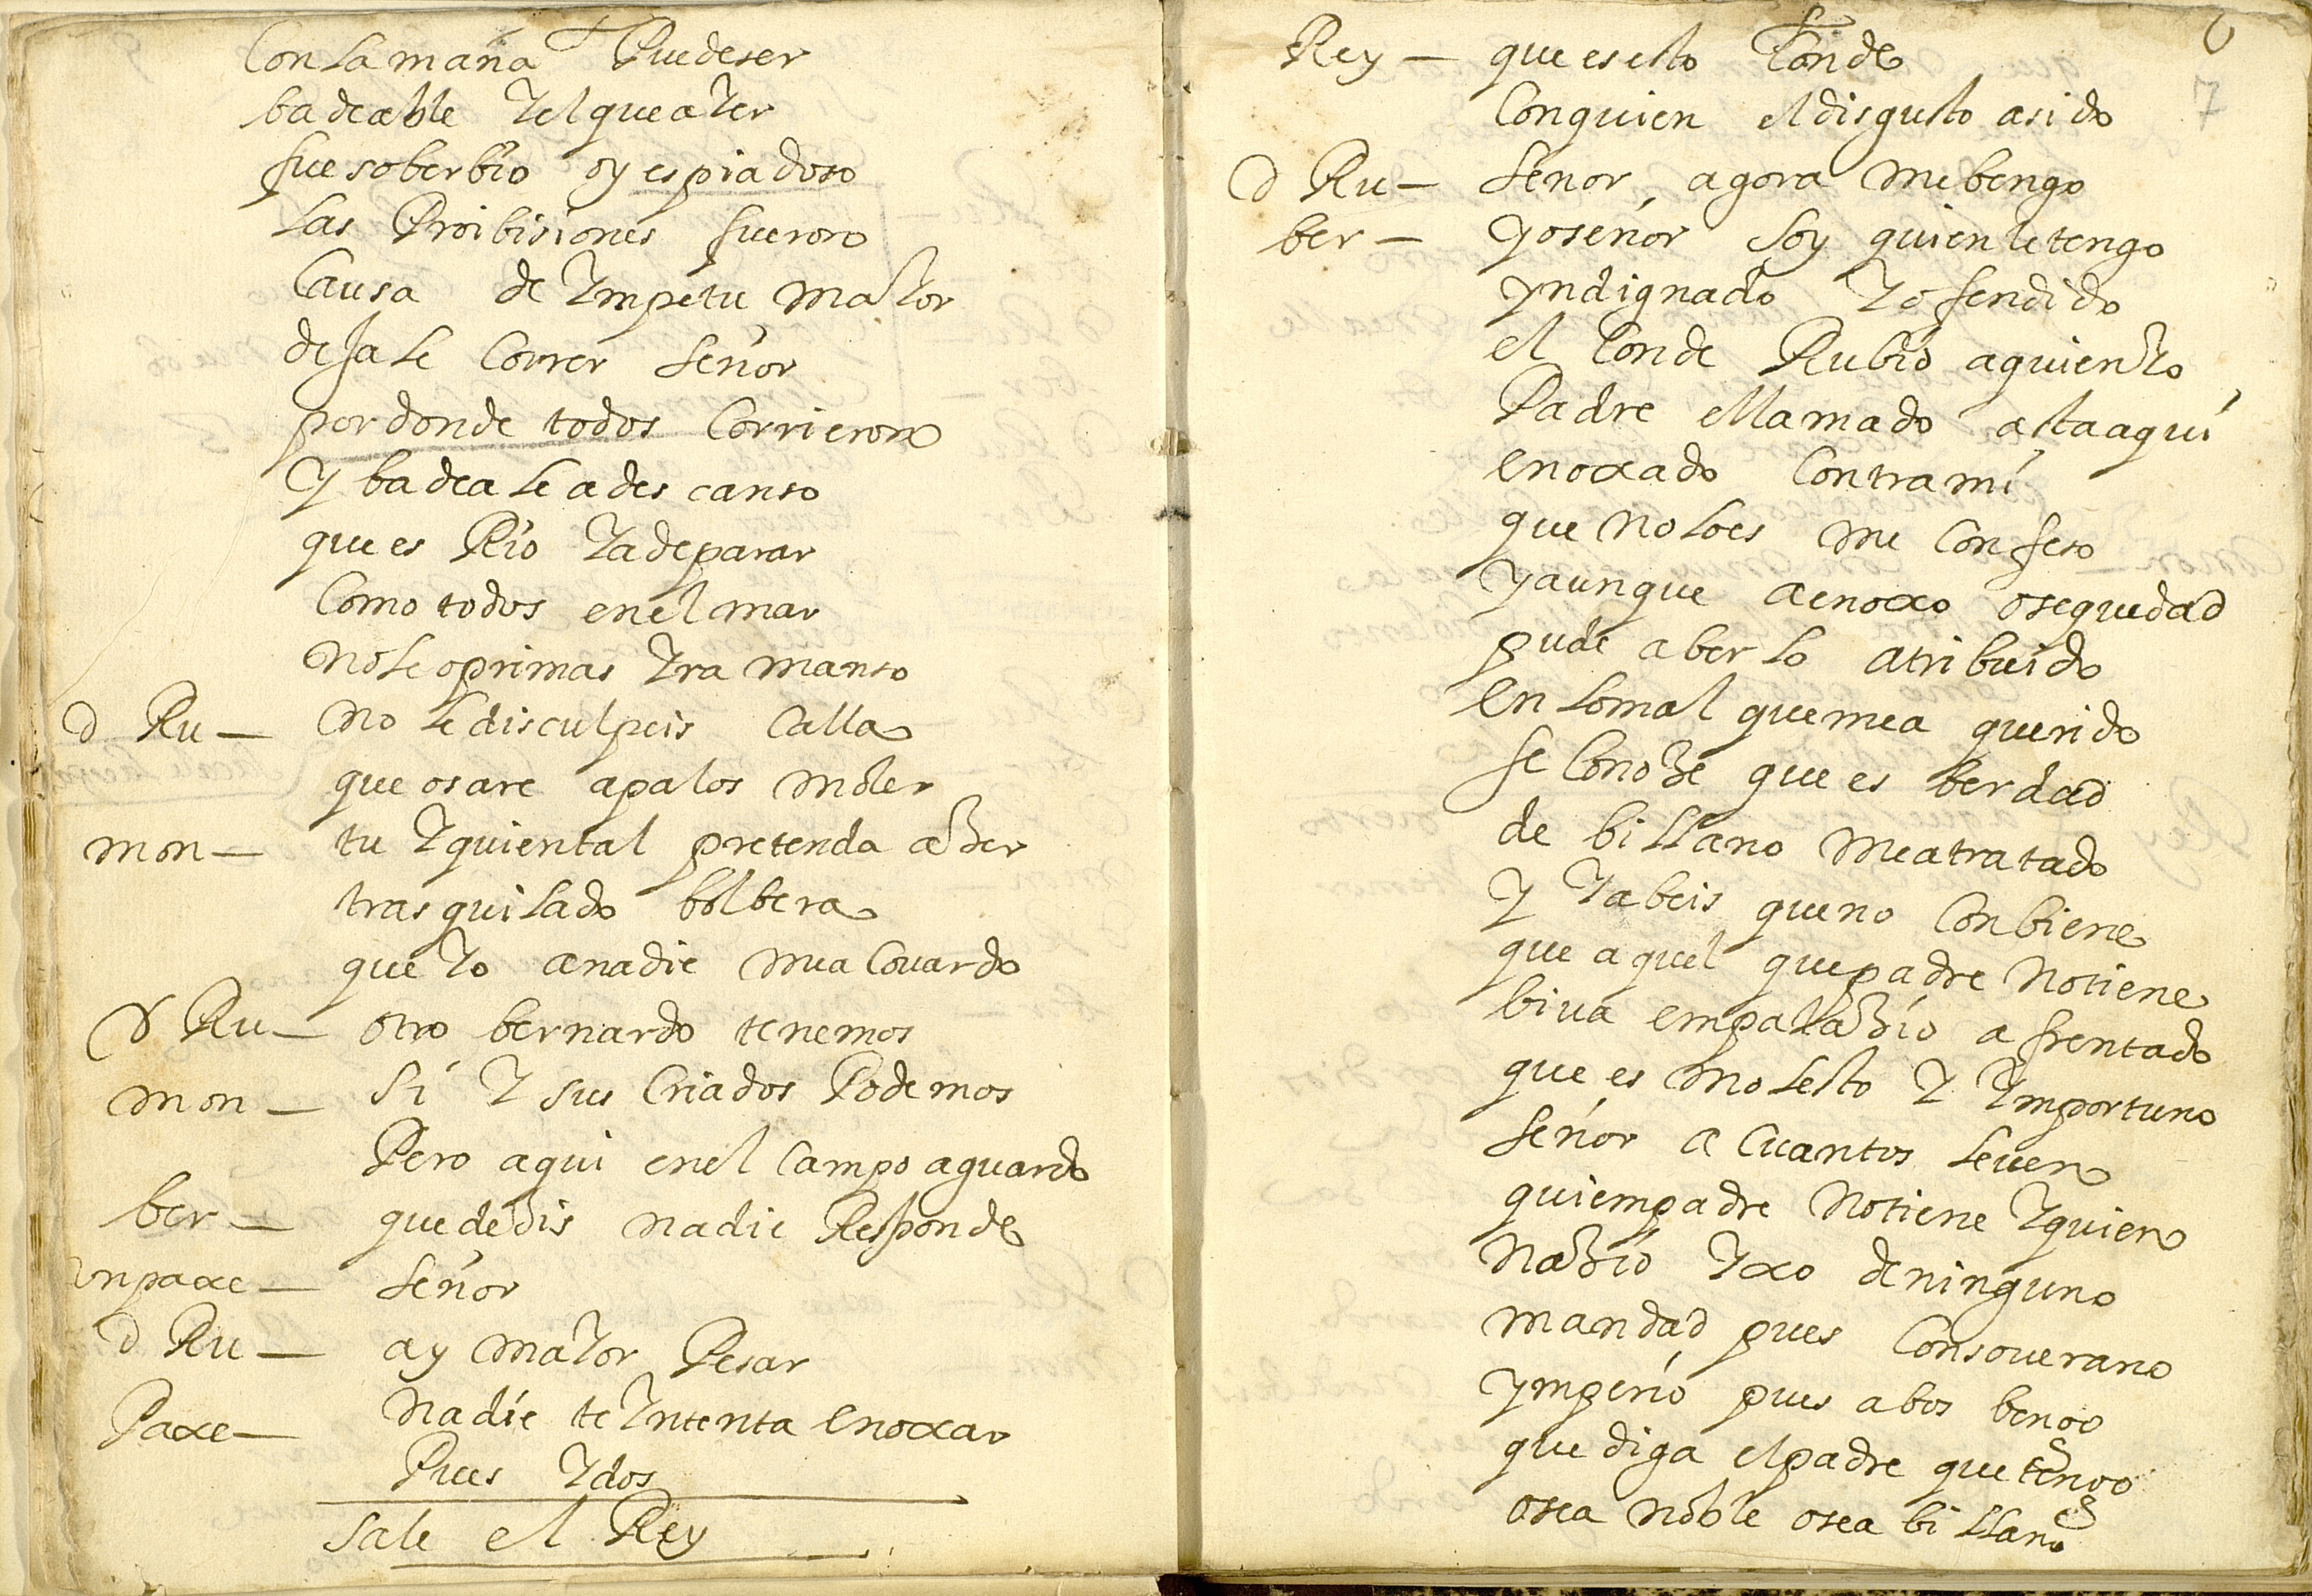 Con la maña Puede ser
badeable y el que ayer
fue soberbio oy es piadoso
las Proibisiones fueron
Causa de ympetu mayor
dejale Correr señor
por donde todos Corrieron
y badeale a descanso
que es Rio y a de parar
Como todos en el mar
no le oprimas yra manso
d Ru — no le disculpeis Calla
que os are a palos moler
mon — tu y quien tal pretenda azer
trasquilado bolbera
que yo a nadie me acouardo
d Ru — otro bernardo tenemos
mon — si y sus Criados Podemos
Pero aqui en el Campo aguardo
ber — que dezis nadie Responde
un paxe — señor
d Ru — ay mayor Pesar
Paxe — nadie te yntenta enoxar
Pues ydos
sale el Rey
6
7
Rey — que es esto Conde
Con quien el disgusto a sido
d Ru — señor agora me bengo
ber — yo señor soy quien le tengo
yndignado y ofendido
el Conde Rubio a quien yo
Padre e llamado asta aqui
enoxado Contra mi
que no lo es me Confeso
y aunque a enoxo o seguedad
pude aberlo atribuido
en lo mal que me a querido
se Conoze que es berdad
de billano me a tratado
y ya beis que no Conbiene
que aquel que padre no tiene
biua em palazio afrentado
que es molesto y ymportuno
señor a Cuantos le uen
quiem padre no tiene y quien
nazio yxo de ninguno
mandad pues Con souerano
ymperio pues a bos bengo
que diga el padre que tengo
o sea noble o sea billano